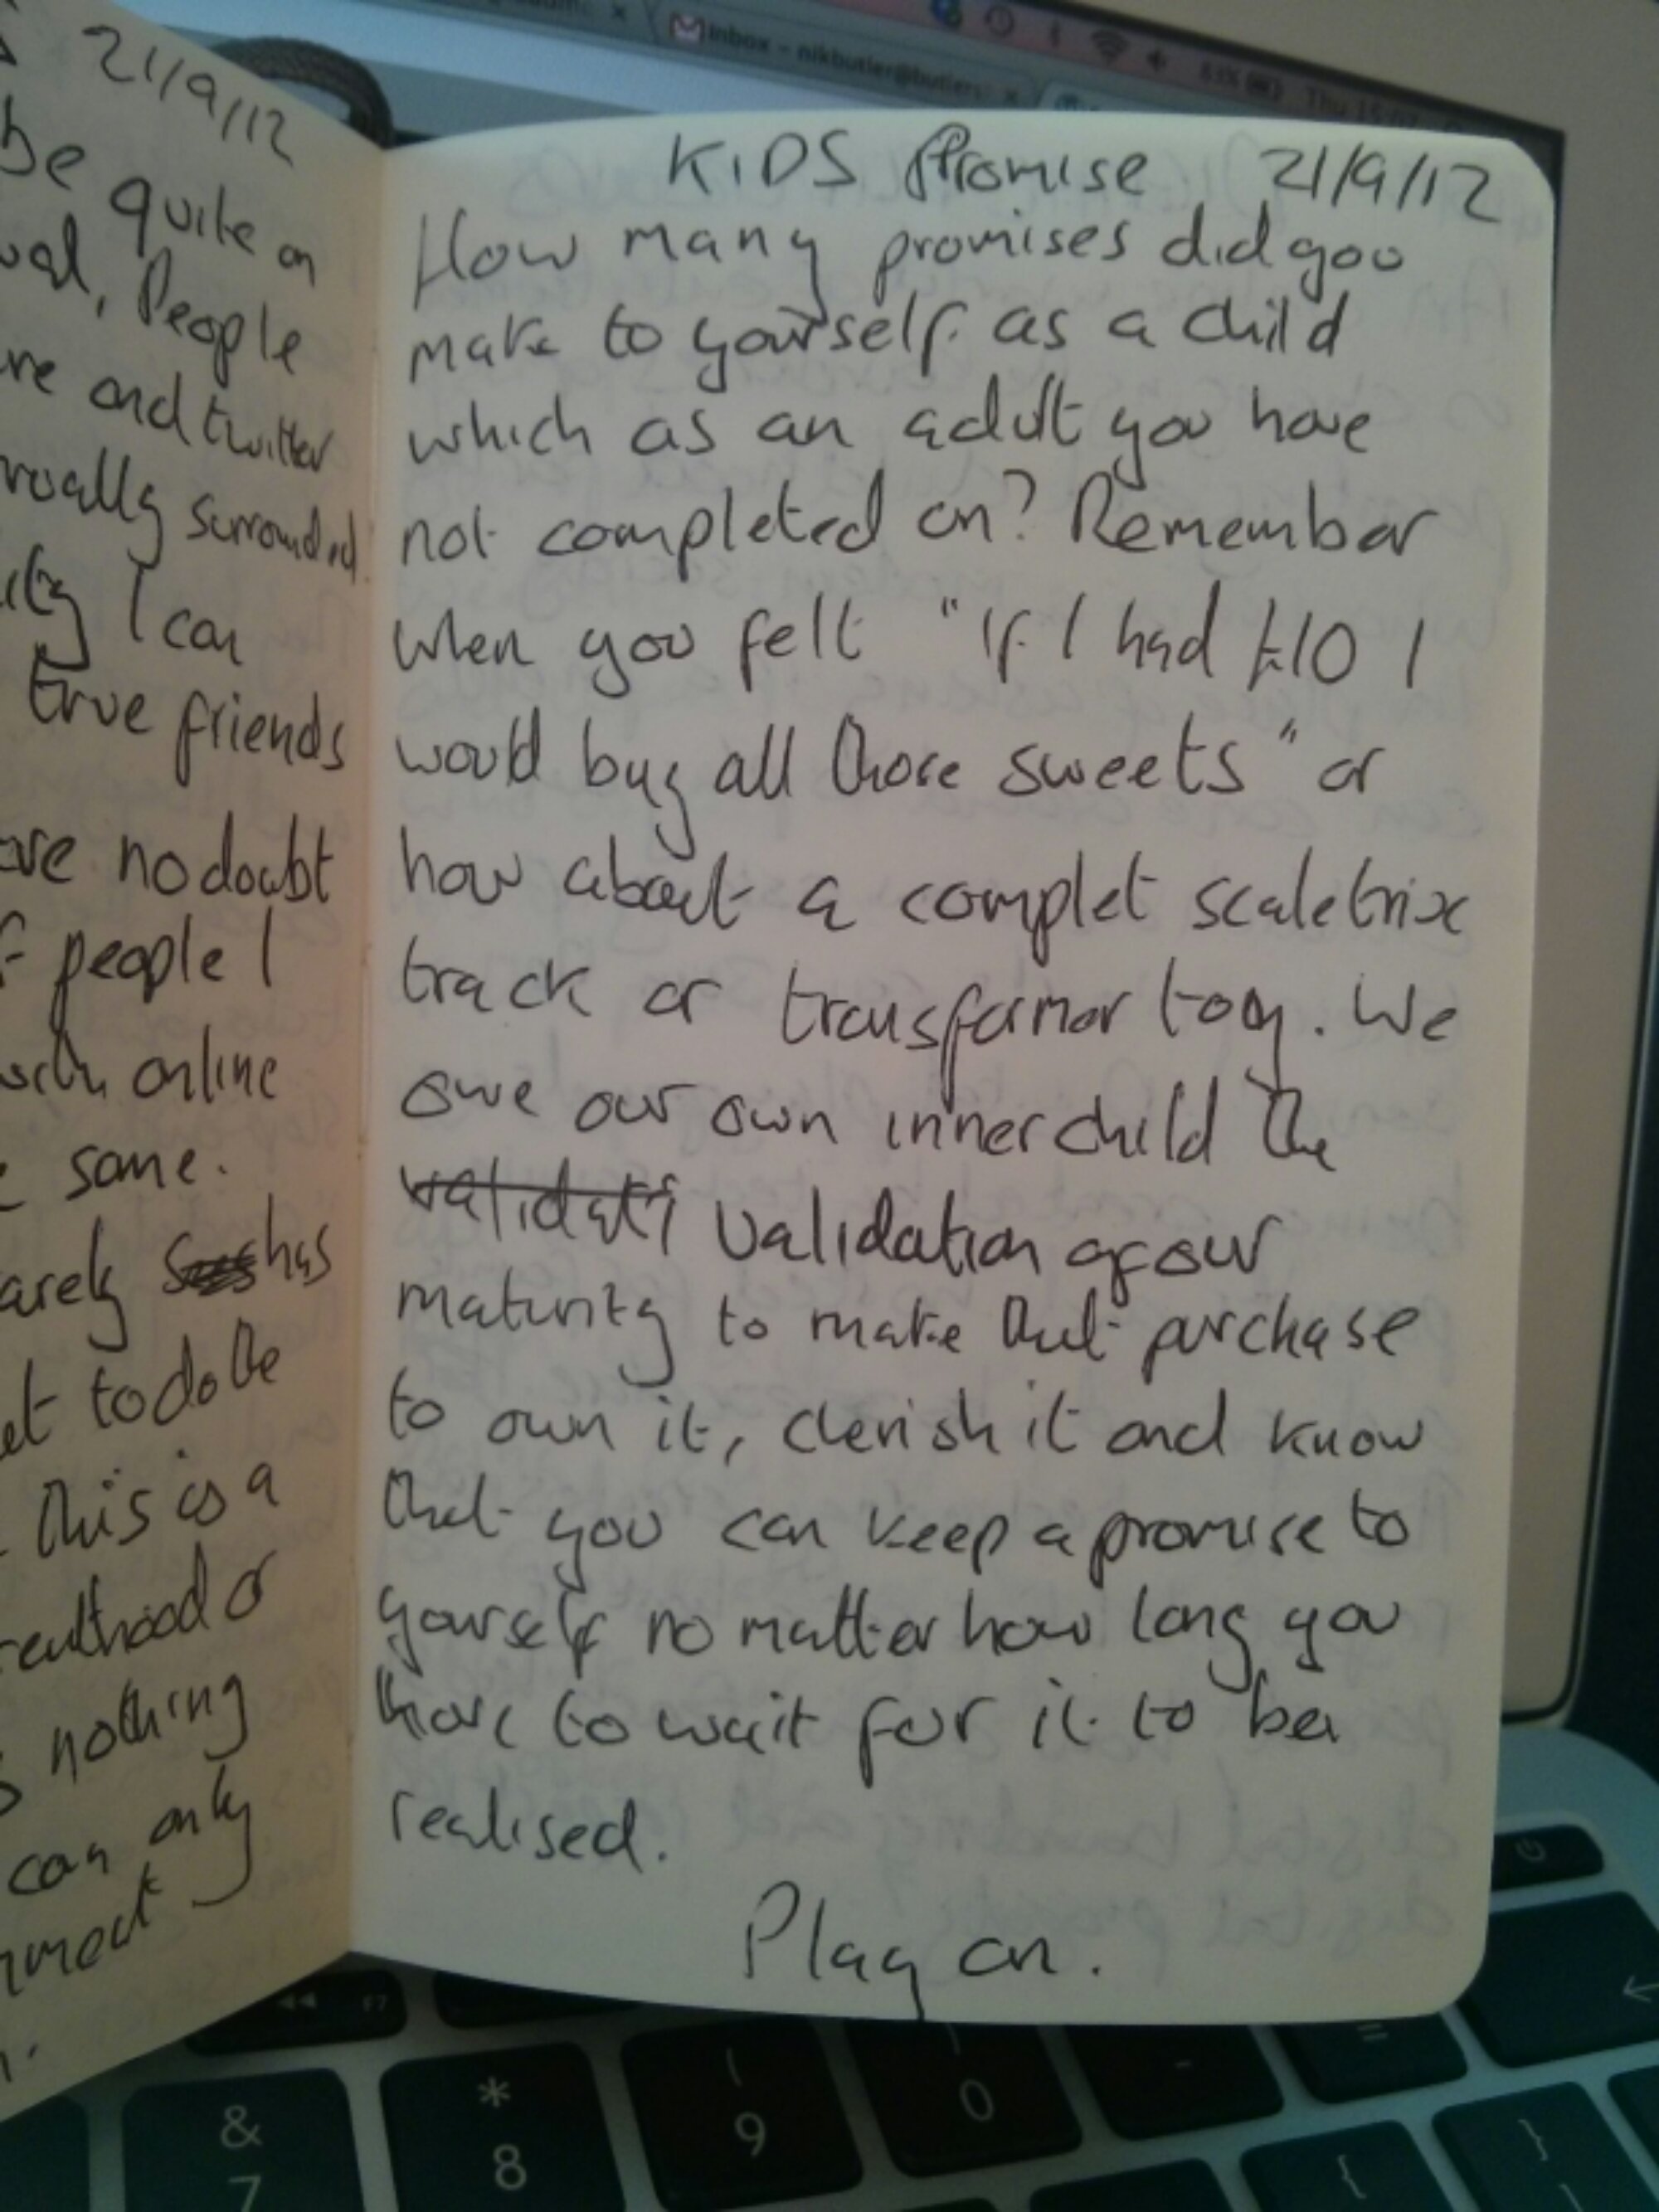 Inbox - nikbutler@butlers
Thu
21/9/12
be quite an
People
and twitter
surrounded
I can
true friends
no doubt
people I
online
same.
has
to do the
this is a
or
nothing
can only
KIDS Promise 21/9/12
How many promises did you
make to yourself as a child
which as an adult you have
not completed on? Remember
when you felt "If I had £10 I
would buy all those sweets" or
how about a complet scaletrix
track or transformer toy. We
owe our own inner child the
validati validation of our
maturity to make that purchase
to own it, cherish it and know
that you can keep a promise to
yourself no matter how long you
have to wait for it to be
realised.
Play on.
F7
& * ( )
7 8 9 0 - =
{ }